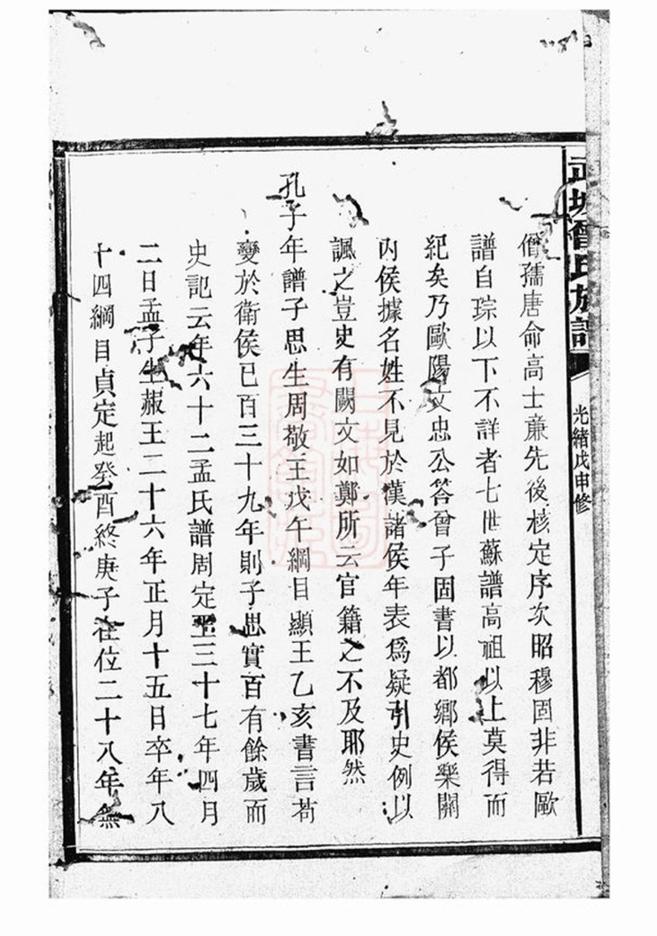 武城曾氏族譜
光緒戊申修
僧孺唐命高士亷先後核定序次昭穆固非若歐
譜自琮以下不詳者七世蘇譜高祖以上莫得而
紀矣乃歐陽文忠公答曾子固書以都鄉侯樂關
內侯據名姓不見於漢諸侯年表爲疑引史例以
諷之豈史有闕文如鄭所云官籍之不及耶然
孔子年譜子思生周敬王戊午綱目顯王乙亥書言苟
變於衛侯已百三十九年則子思實百有餘歲而
史記云年六十二孟氏譜周定王三十七年四月
二日孟子生赧王二十六年正月十五日卒年八
十四綱目貞定起癸酉終庚子在位二十八年無